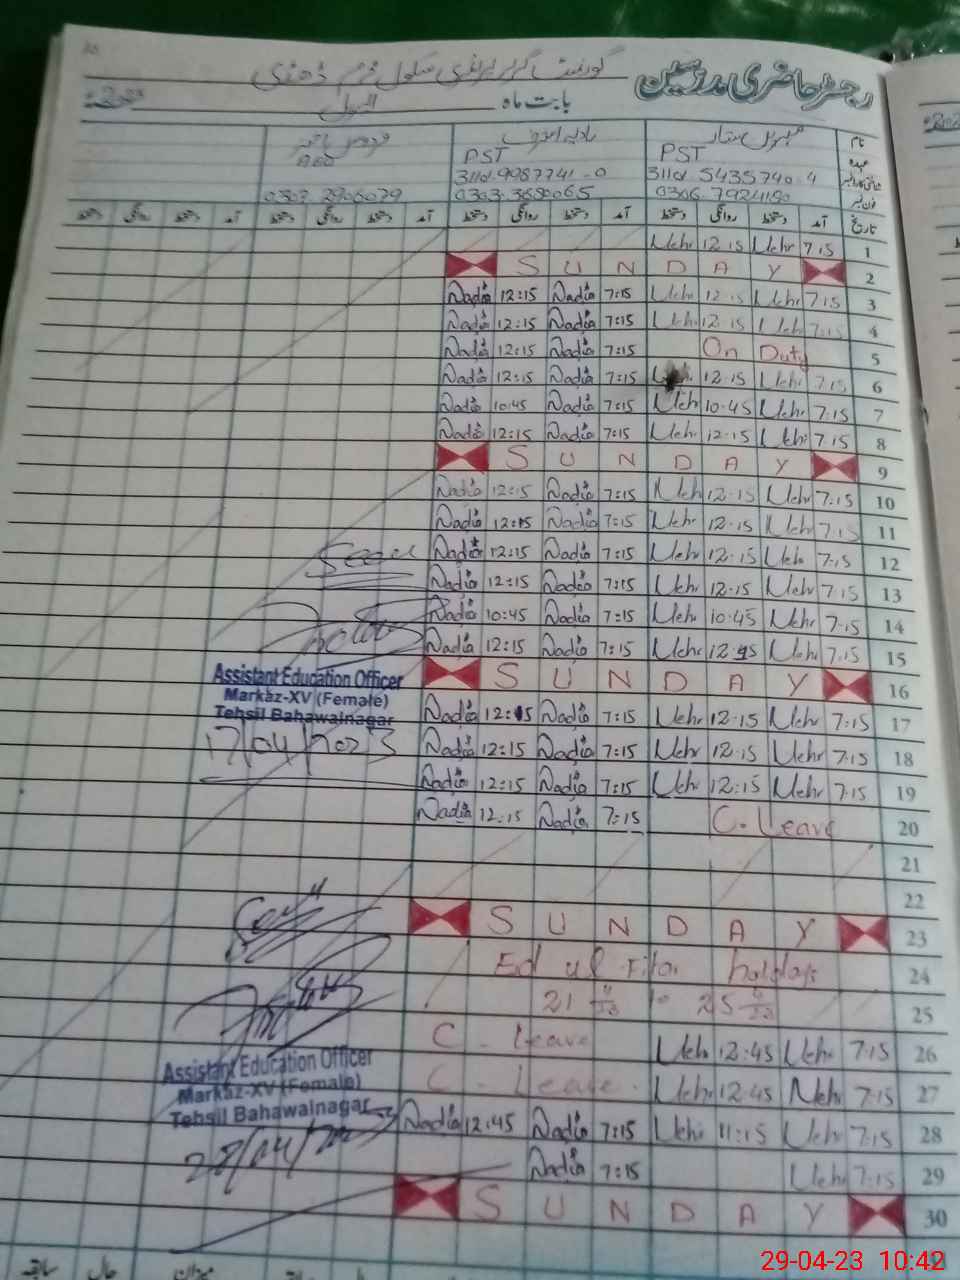 رجسٹر حاضری مدرسین گورنمنٹ گرلز ایلیمنٹری سکول
بابت ماہ اپریل
نام مہرین ستار نادیہ
عہدہ PST PST
31101.5435740.4 31101.9987741-0
فون نمبر 0306.7924190 0303.3680065 0303.2906079
تاریخ آمد دستخط روانگی دستخط آمد دستخط روانگی دستخط آمد دستخط روانگی دستخط آمد دستخط روانگی دستخط
Mehr 12.15 Mehr 7.15 1
S U N D A Y 2
Nadia 12:15 Nadia 7:15 Mehr 12.15 Mehr 7.15 3
Nadia 12:15 Nadia 7:15 Mehr 12.15 Mehr 7.15 4
Nadia 12:15 Nadia 7:15 On Duty 5
Nadia 12:15 Nadia 7:15 12.15 Mehr 7.15 6
Nadia 10:45 Nadia 7:15 Mehr 10.45 Mehr 7.15 7
Nadia 12:15 Nadia 7:15 Mehr 12.15 Mehr 7.15 8
S U N D A Y 9
Nadia 12:15 Nadia 7:15 Mehr 12.15 Mehr 7.15 10
Nadia 12:15 Nadia 7:15 Mehr 12.15 Mehr 7.15 11
Nadia 12:15 Nadia 7:15 Mehr 12.15 Mehr 7.15 12
Nadia 12:15 Nadia 7:15 Mehr 12.15 Mehr 7.15 13
Nadia 10:45 Nadia 7:15 Mehr 10.45 Mehr 7.15 14
Nadia 12:15 Nadia 7:15 Mehr 12.15 Mehr 7.15 15
S U N D A Y 16
Nadia 12:15 Nadia 7:15 Mehr 12.15 Mehr 7.15 17
Nadia 12:15 Nadia 7:15 Mehr 12.15 Mehr 7.15 18
Nadia 12:15 Nadia 7:15 Mehr 12.15 Mehr 7.15 19
Nadia 12:15 Nadia 7:15 C. Leave 20
21
22
S U N D A Y 23
Eid ul Fitar holidays 24
21 4/23 to 25 4/23 25
C - Leave Mehr 12:45 Mehr 7:15 26
C - Leave Mehr 12.45 Mehr 7.15 27
Nadia 12:45 Nadia 7:15 Mehr 11:15 Mehr 7.15 28
Nadia 7:15 Mehr 7.15 29
S U N D A Y 30
Seen
Assistant Education Officer
Markaz-XV (Female)
Tehsil Bahawalnagar
17/04/2023
Seen
Assistant Education Officer
Markaz-XV (Female)
Tehsil Bahawalnagar
28/04/2023
سابقہ حال میزان سابقہ
29-04-23 10:42